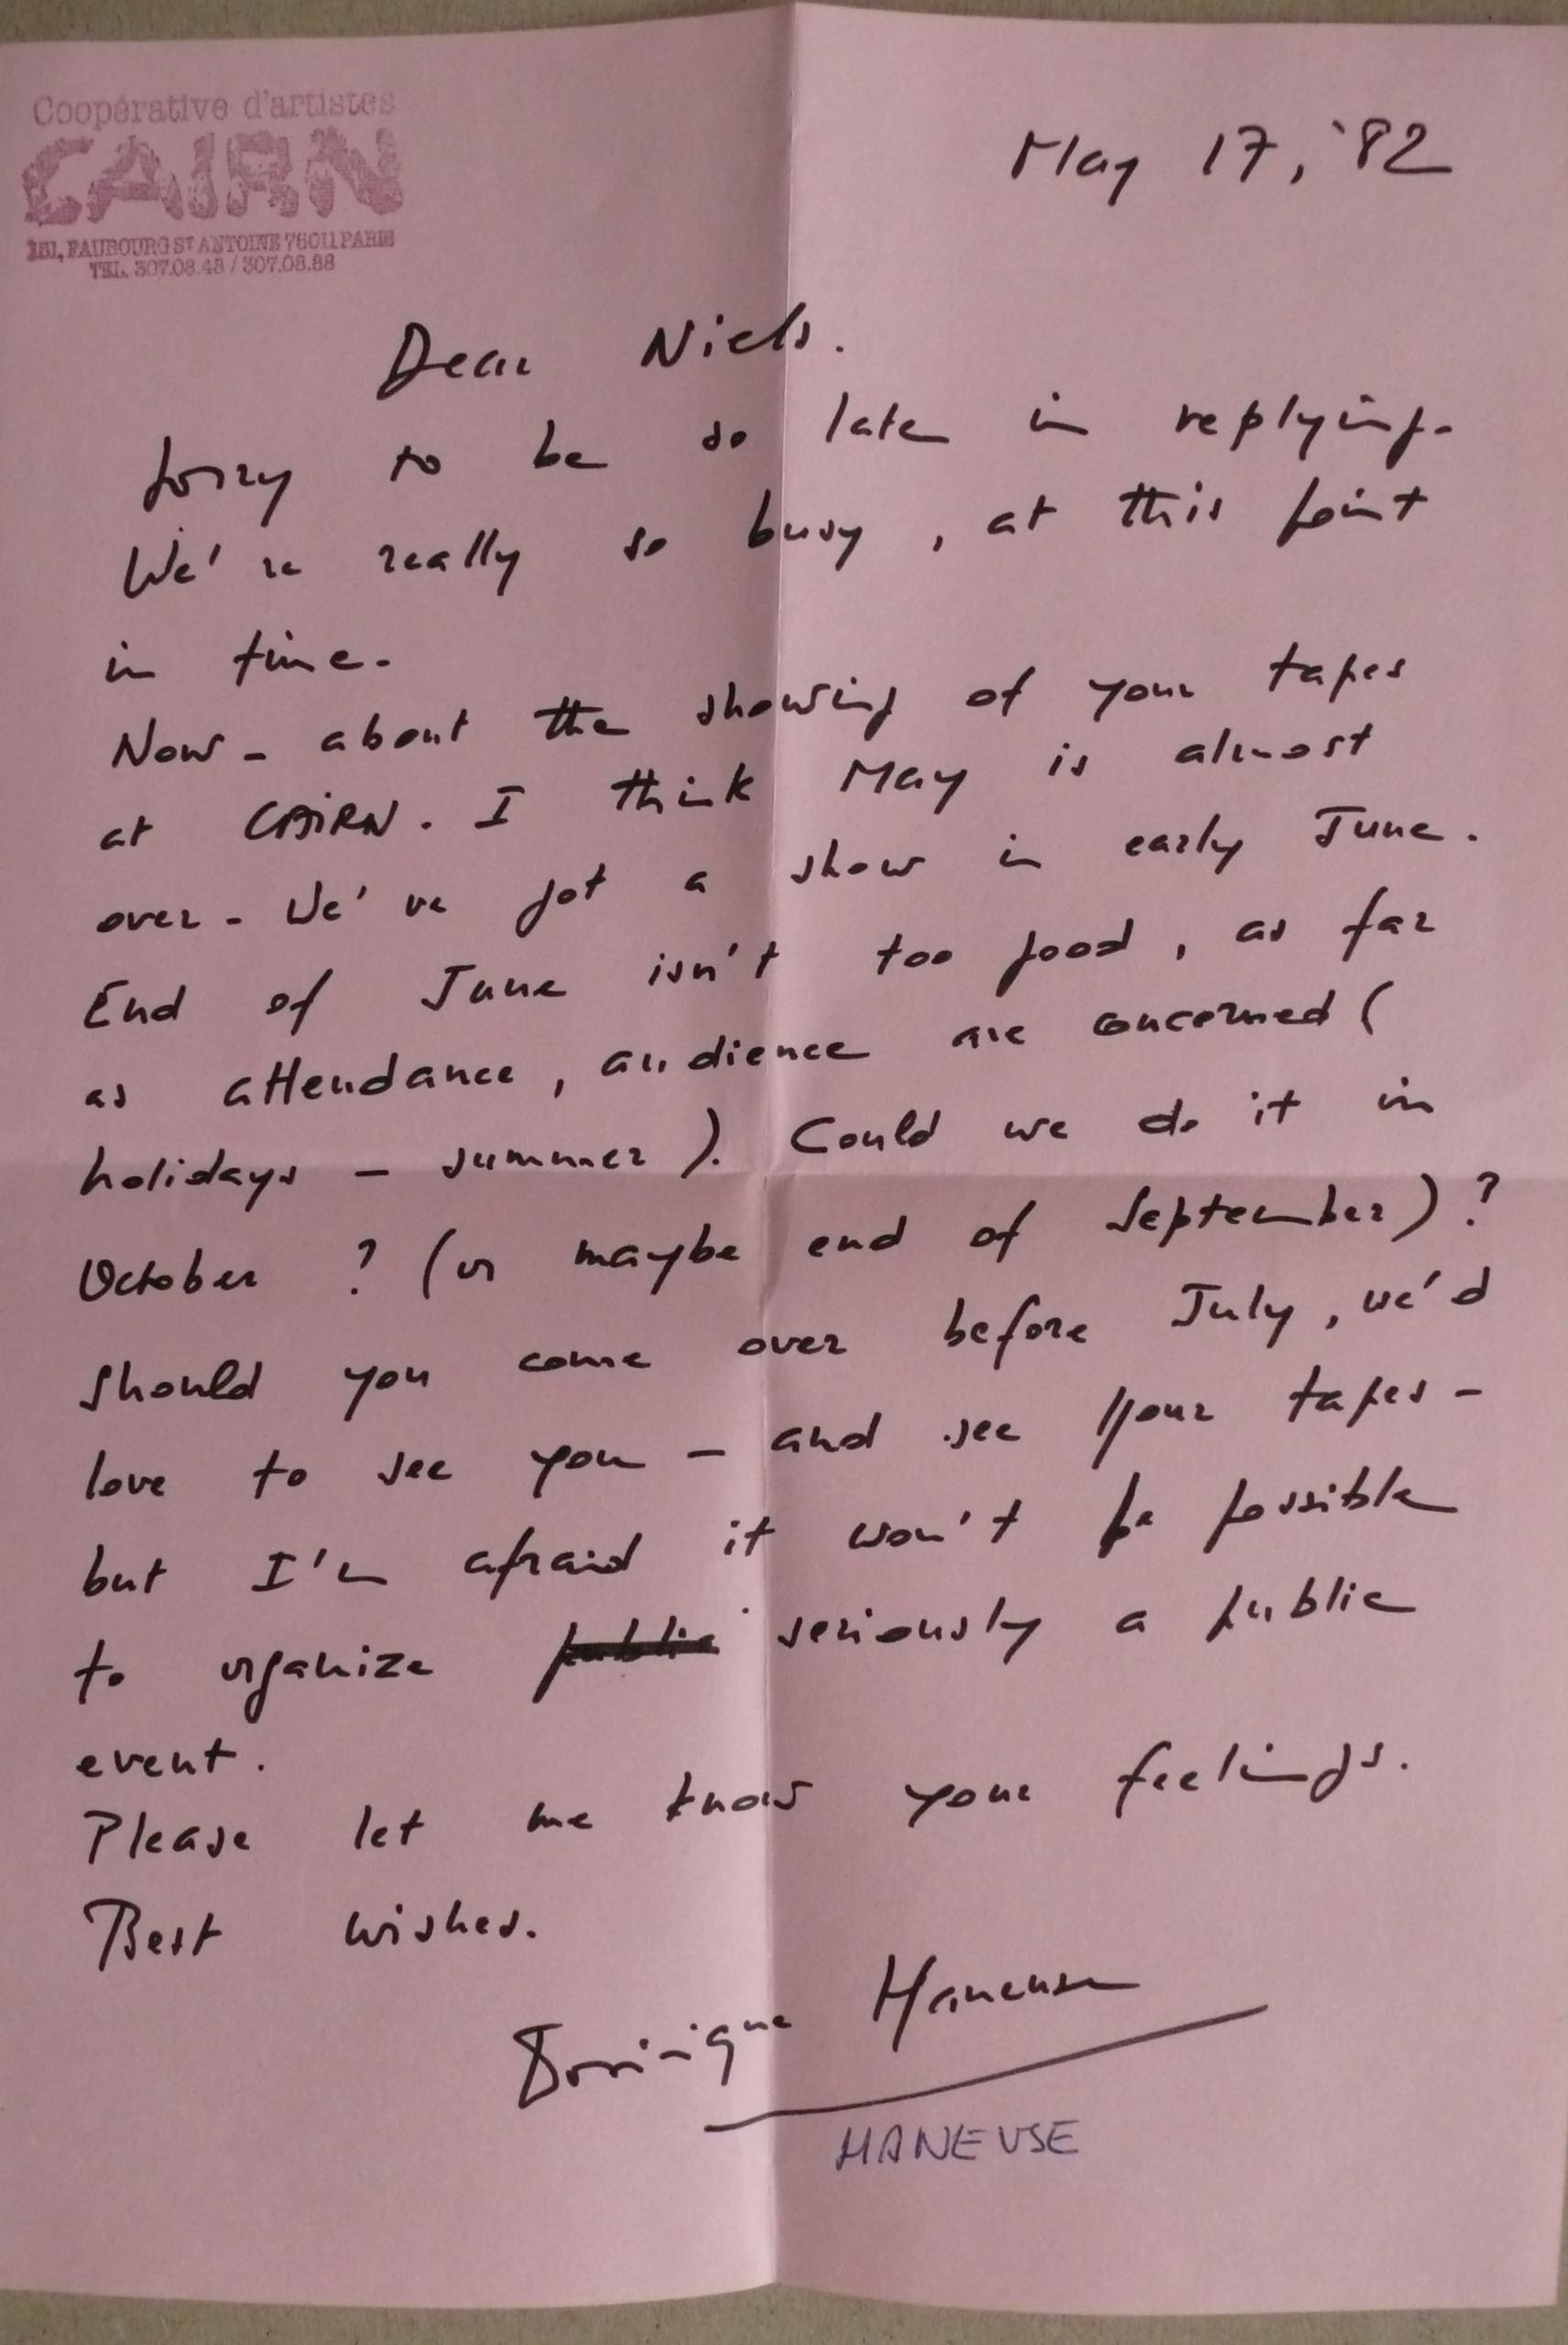 Coopérative d'artistes
CAIRN
151, FAUBOURG ST ANTOINE 75011 PARIS
TEL. 307.08.48 / 307.08.88
May 17, '82
Dear Niels.
Sorry to be so late in replying.
We're really so busy, at this point
in time.
Now - about the showing of your tapes
at CAiRN. I think May is almost
over - We've got a show in early June.
End of June isn't too good, as far
as attendance, audience are concerned (
holidays - summer). Could we do it in
October ? (or maybe end of September) ?
Should you come over before July, we'd
love to see you - and see your tapes -
but I'm afraid it won't be possible
to organize public seriously a public
event.
Please let me know your feelings.
Best wishes.
Dominique Haneuse
HANEUSE